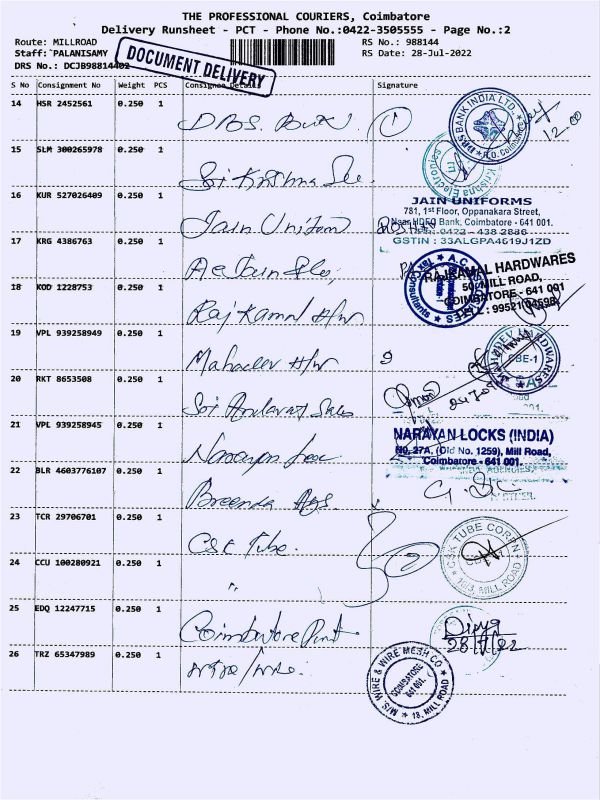 THE PROFESSIONAL COURIERS, Coimbatore
Delivery Runsheet - PCT - Phone No.:0422-3505555 - Page No.:2
Route: MILLROAD
RS No.: 988144
Staff: PALANISAMY
RS Date: 28-Jul-2022
DRS No.: DCJB98814402
DOCUMENT DELIVERY
S No Consignment No Weight PCS Consignee Details Signature
14 HSR 2452561 0.250 1 DBS. Bank. 1
DBS BANK INDIA LTD., R.O. Coimbatore
12.00
15 SLM 300265978 0.250 1 Sri Krishna Ele
Krishna Electronics
16 KUR 527026409 0.250 1 Jain Uniform
JAIN UNIFORMS
781, 1st Floor, Oppanakara Street,
Near HDFC Bank, Coimbatore - 641 001.
0422 - 438 2886
GSTIN : 33ALGPA4619J1ZD
17 KRG 4386763 0.250 1 A C Jain &
Tax Consultants
18 KOD 1228753 0.250 1 Raj Kamal H/w
RAJKAMAL HARDWARES
50, MILL ROAD,
COIMBATORE - 641 001
CELL : 99521 04598
19 VPL 939258949 0.250 1 Mahadev H/w 9
MAHADEV HARDWARES
CBE-1
20 RKT 8653508 0.250 1 Sri Sales
21 VPL 939258945 0.250 1 Narayan
NARAYAN LOCKS (INDIA)
No. 27A, (Old No. 1259), Mill Road,
Coimbatore - 641 001.
22 BLR 4603776107 0.250 1 Breenda Ags.
AGENCIES
23 TCR 29706701 0.250 1 CSK Tube.
CSK TUBE CORPN
MILL ROAD
24 CCU 100280921 0.250 1 "
25 EDQ 12247715 0.250 1 Coimbatore Paint
Divya
28/7/22
26 TRZ 65347989 0.250 1 Wire/Wire.
M/S. WIRE & WIRE MESH CO
COIMBATORE
641 001.
18, MILL ROAD